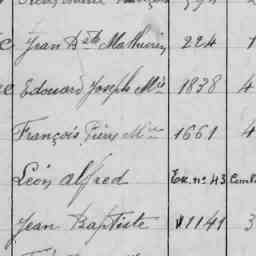 Jean Bte Mathurin 224 1
Edouard Joseph Mie 1838 4
François Pierre Mie 1661 4
Léon Alfred Ex. no 43
Jean Baptiste 1141 3